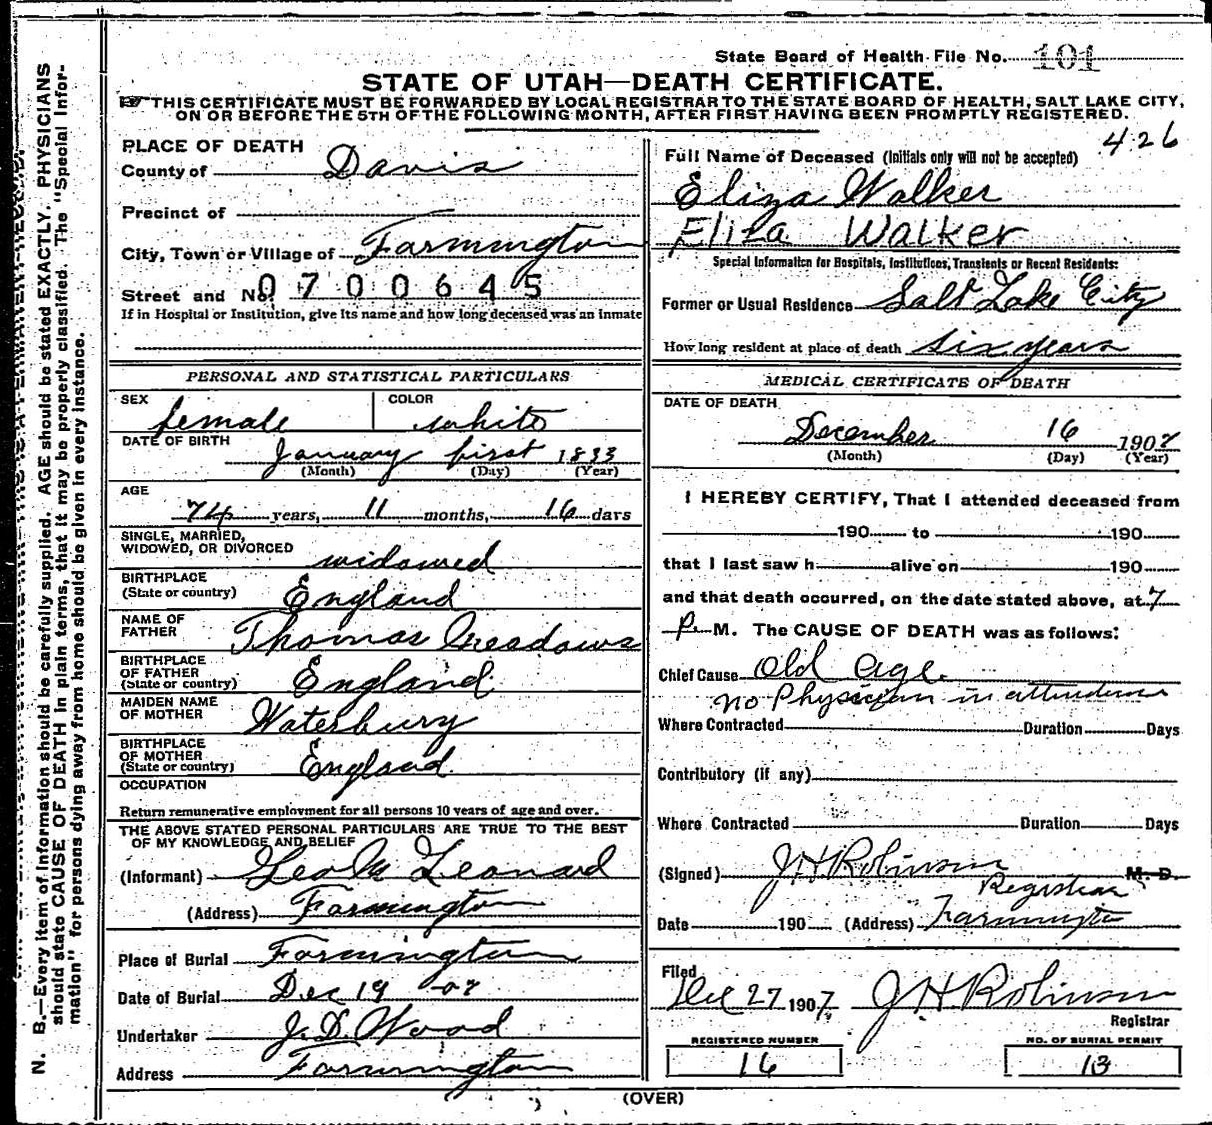 State Board of Health File No. 101
STATE OF UTAH—DEATH CERTIFICATE.
THIS CERTIFICATE MUST BE FORWARDED BY LOCAL REGISTRAR TO THE STATE BOARD OF HEALTH, SALT LAKE CITY,
ON OR BEFORE THE 5TH OF THE FOLLOWING MONTH, AFTER FIRST HAVING BEEN PROMPTLY REGISTERED.
426
PLACE OF DEATH
County of Davis
Precinct of
City, Town or Village of Farmington
Street and No. 0700645
If in Hospital or Institution, give its name and how long deceased was an inmate
Full Name of Deceased (Initials only will not be accepted)
Eliza Walker
Eliza Walker
Special Information for Hospitals, Institutions, Transients or Recent Residents:
Former or Usual Residence Salt Lake City
How long resident at place of death six years
PERSONAL AND STATISTICAL PARTICULARS
SEX female COLOR white
DATE OF BIRTH
January first 1833
(Month) (Day) (Year)
AGE
74 years, 11 months, 16 days
SINGLE, MARRIED,
WIDOWED, OR DIVORCED widowed
BIRTHPLACE
(State or country) England
NAME OF
FATHER Thomas Meadows
BIRTHPLACE
OF FATHER
(State or country) England
MAIDEN NAME
OF MOTHER Waterbury
BIRTHPLACE
OF MOTHER
(State or country) England
OCCUPATION
Return remunerative employment for all persons 10 years of age and over.
THE ABOVE STATED PERSONAL PARTICULARS ARE TRUE TO THE BEST
OF MY KNOWLEDGE AND BELIEF
(Informant) Geo M Leonard
(Address) Farmington
Place of Burial Farmington
Date of Burial Dec 19 -07
Undertaker J.D. Wood
Address Farmington
MEDICAL CERTIFICATE OF DEATH
DATE OF DEATH
December 16 1907
(Month) (Day) (Year)
I HEREBY CERTIFY, That I attended deceased from
190 to 190
that I last saw h alive on 190
and that death occurred, on the date stated above, at 7
P. M. The CAUSE OF DEATH was as follows:
Chief Cause Old age.
no Physician in attendance
Where Contracted Duration Days
Contributory (if any)
Where Contracted Duration Days
(Signed) J H Robinson M. D.
Registrar
Date 190 (Address) Farmington
Filed
Dec 27 1907, J H Robinson
Registrar
REGISTERED NUMBER
16
NO. OF BURIAL PERMIT
13
(OVER)
N. B.—Every item of information should be carefully supplied. AGE should be stated EXACTLY. PHYSICIANS
should state CAUSE OF DEATH in plain terms, that it may be properly classified. The "Special Infor-
mation" for persons dying away from home should be given in every instance.